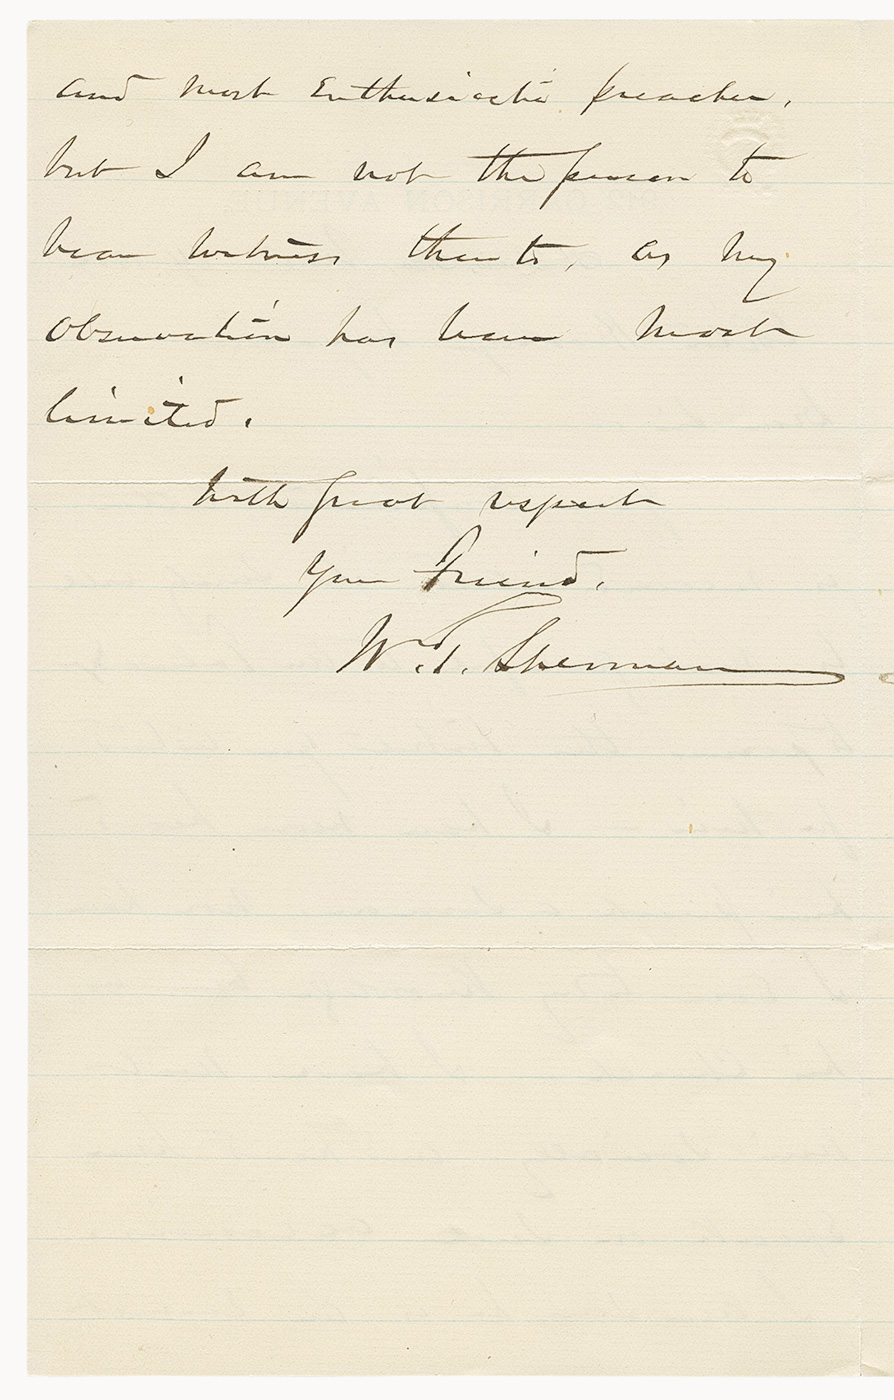 and most Enthusiastic preacher,
but I am not the person to
bear witness thereto, as my
observation has been most
limited.
With great respect
Your friend,
W. T. Sherman